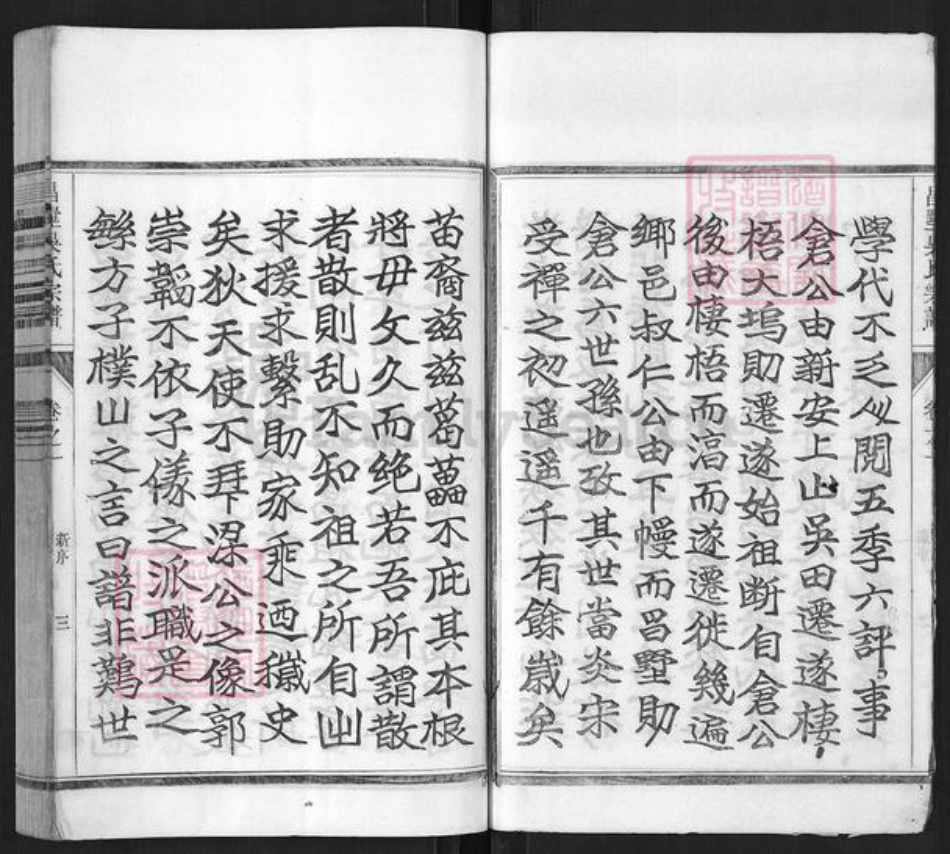 學代不乏人閱五季六評事
倉公由新安上山吳田遷遂棲
梧大塢則遷遂始祖断自倉公
後由棲梧而滀而遂遷徙幾遍
鄉邑叔仁公由下幔而昌墅則
倉公六世孫也攷其世當炎宋
受禪之初遥遥千有餘嵗矣
苗裔兹兹葛藟不庇其本根
將毋攵久而絶若吾所謂散
者散則乱不知祖之所自出
求援求繫助家乘迺穢史
矣狄天使不拜梁公之像郭
崇韜不依子儀之派職是之
繇方子樸山之言曰譜非難世
昌墅吳氏宗譜
卷之一
新序
三